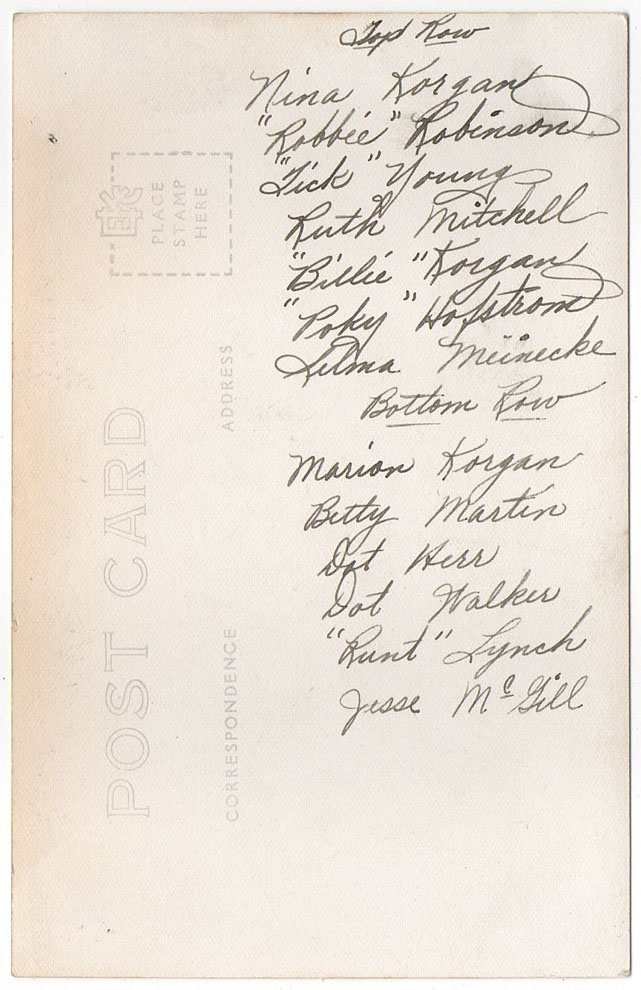 Top Row
Nina Korgan
"Robbie" Robinson
"Tick" Young
Ruth Mitchell
"Billie" Korgan
"Poky" Hofstrom
Selma Meinecke
Bottom Row
Marion Korgan
Betty Martin
Dot Herr
Dot Walker
"Runt" Lynch
Jesse McGill
PLACE
STAMP
HERE
ADDRESS
POST CARD
CORRESPONDENCE